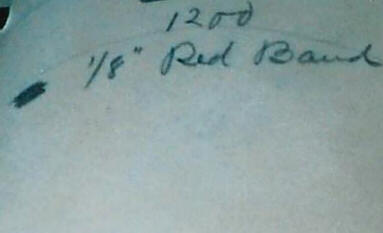 1200
1/8" Red Band